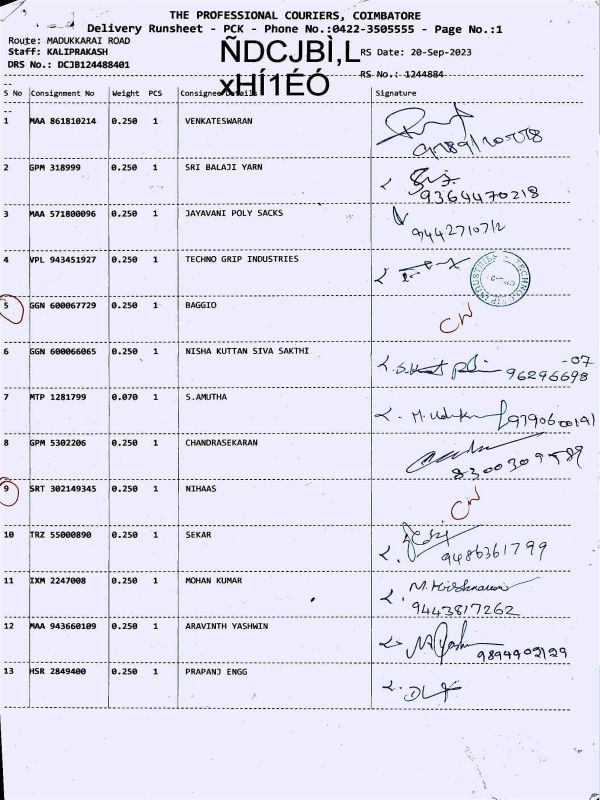 THE PROFESSIONAL COURIERS, COIMBATORE
Delivery Runsheet - PCK - Phone No.:0422-3505555 - Page No.:1
Route: MADUKKARAI ROAD
Staff: KALIPRAKASH
ÑDCJBÌ,L
RS Date: 20-Sep-2023
DRS No.: DCJB124488401
xHÍ1ÉÓ
RS No.: 1244884
S No Consignment No Weight PCS Consignee Details Signature
1 MAA 861810214 0.250 1 VENKATESWARAN
2 GPM 318999 0.250 1 SRI BALAJI YARN
9364470218
3 MAA 571800096 0.250 1 JAYAVANI POLY SACKS
9442710712
4 VPL 943451927 0.250 1 TECHNO GRIP INDUSTRIES
5 GGN 600067729 0.250 1 BAGGIO CN
6 GGN 600066065 0.250 1 NISHA KUTTAN SIVA SAKTHI
96296698-07
7 MTP 1281799 0.070 1 S.AMUTHA
9790600191
8 GPM 5302206 0.250 1 CHANDRASEKARAN
9 SRT 302149345 0.250 1 NIHAAS CN
10 TRZ 55000890 0.250 1 SEKAR
9486361799
11 IXM 2247008 0.250 1 MOHAN KUMAR
9443817262
12 MAA 943660109 0.250 1 ARAVINTH YASHWIN
9894402129
13 HSR 2849400 0.250 1 PRAPANJ ENGG